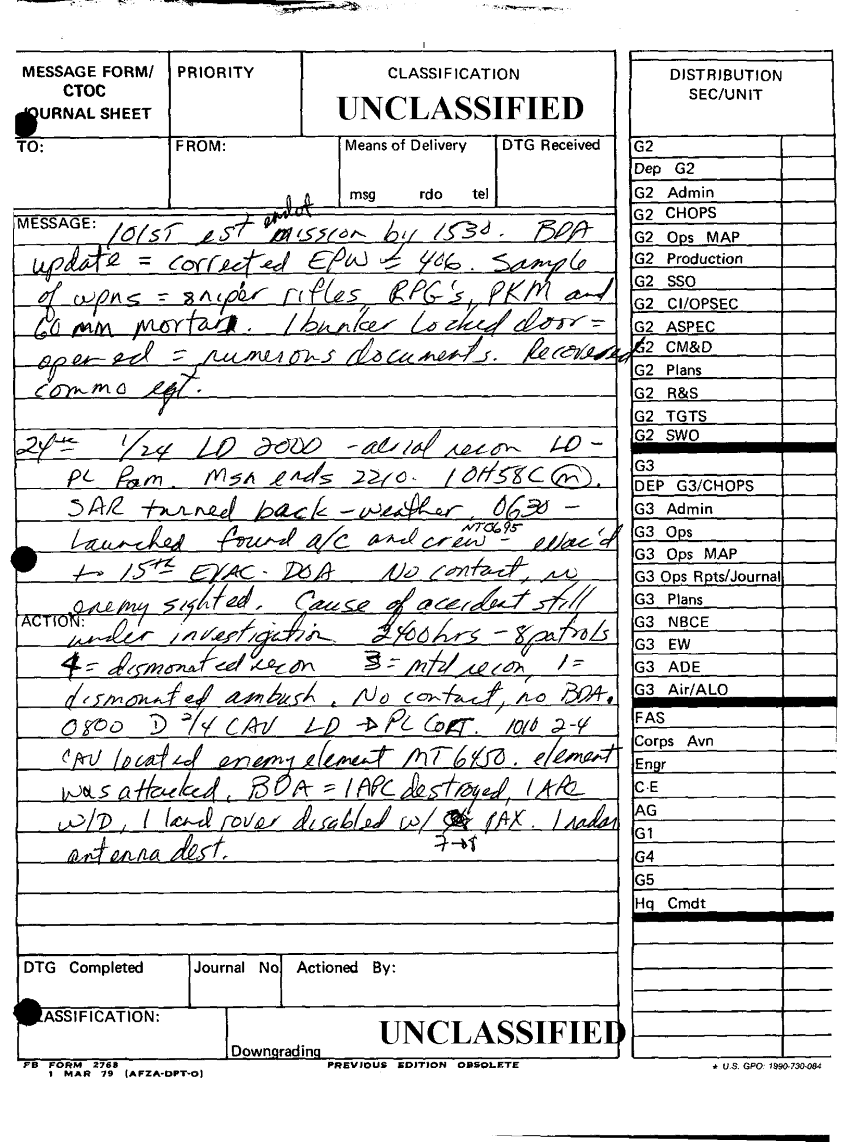 MESSAGE FORM/
CTOC
JOURNAL SHEET
PRIORITY
CLASSIFICATION
UNCLASSIFIED
TO:
FROM:
Means of Delivery
msg rdo tel
DTG Received
MESSAGE:
101ST est end of mission by 1530. BDA
update = corrected EPW = 406. Sample
of wpns = sniper rifles, RPG's, PKM and
60 mm mortar. 1 bunker locked door =
opened = numerous documents. Recovered
commo eqt.
24th 1/24 LD 2000 - aerial recon LD -
PL Pam. Msn ends 2210. 1 OH58C (m).
SAR turned back - weather. 0630 -
Launched found a/c and crew - NT0695 evac'd
to 15th EVAC - DOA No contact, no
enemy sighted. Cause of accident still
ACTION:
under investigation 2400hrs - 8 patrols
4 = dismonated recon 3 = mtd recon, 1 =
dismonated ambush. No contact, no BDA.
0800 D 2/4 CAV LD → PL 1010 2-4
CAV located enemy element MT6450. element
was attacked. BDA = 1 APC destroyed, 1 APC
W/D, 1 land rover disabled w/ PAX. 1 radar
7→8
antenna dest.
DTG Completed
Journal No
Actioned By:
CLASSIFICATION:
Downgrading
UNCLASSIFIED
FB FORM 2768
1 MAR 79 (AFZA-DPT-O)
PREVIOUS EDITION OBSOLETE
* U.S. GPO: 1990-730-084
DISTRIBUTION
SEC/UNIT
G2
Dep G2
G2 Admin
G2 CHOPS
G2 Ops MAP
G2 Production
G2 SSO
G2 CI/OPSEC
G2 ASPEC
G2 CM&D
G2 Plans
G2 R&S
G2 TGTS
G2 SWO
G3
DEP G3/CHOPS
G3 Admin
G3 Ops
G3 Ops MAP
G3 Ops Rpts/Journal
G3 Plans
G3 NBCE
G3 EW
G3 ADE
G3 Air/ALO
FAS
Corps Avn
Engr
C-E
AG
G1
G4
G5
Hq Cmdt